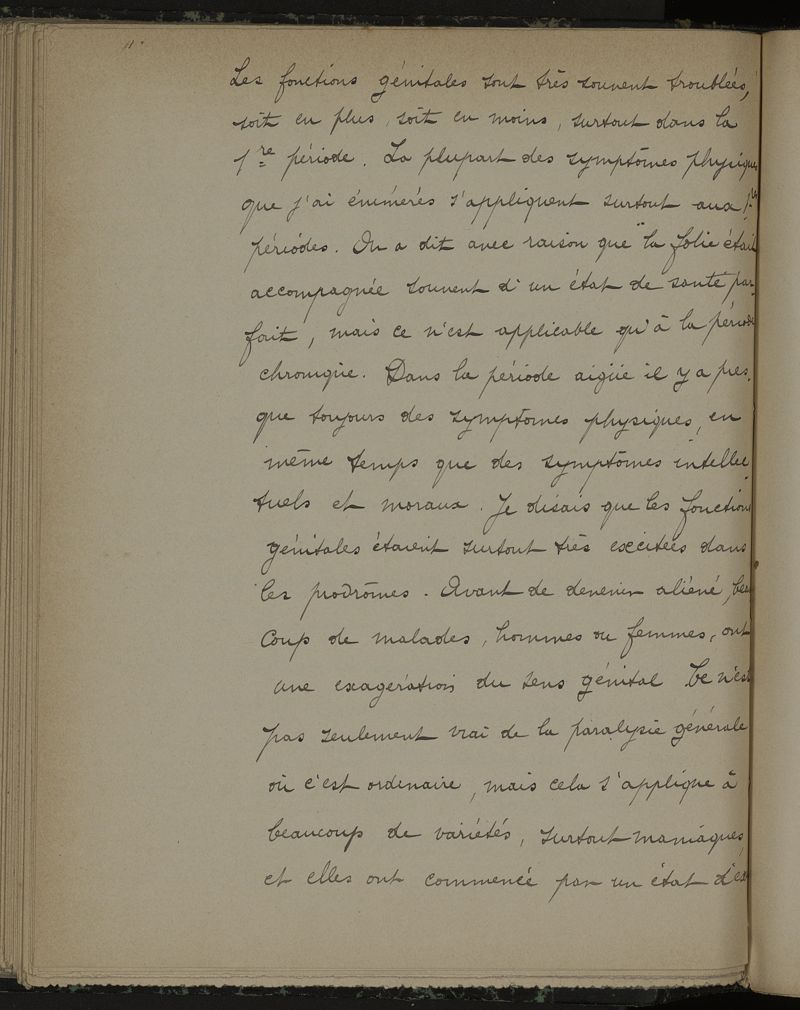 Les fonctions génitales sont très souvent troublées,
soit en plus, soit en moins, surtout dans la
1re période. La plupart des symptômes physiques
que j'ai énumérés s'appliquent surtout aux 1res
périodes. On a dit avec raison que "la folie était
accompagnée souvent d'un état de santé par-
fait, mais ce n'est applicable qu'à la période
chronique. Dans la période aigüe il y a pres-
que toujours des symptômes physiques, en
même temps que des symptômes intellec-
tuels et moraux. Je disais que les fonctions
génitales étaient surtout très excitées dans
les prodrômes. Avant de devenir aliéné, beau
coup de malades, hommes ou femmes, ont
une exagération du sens génital Ce n'est
pas seulement vrai de la paralysie générale
où c'est ordinaire, mais cela s'applique à
beaucoup de variétés, surtout maniaques,
et elles ont commencé par un état d'ex